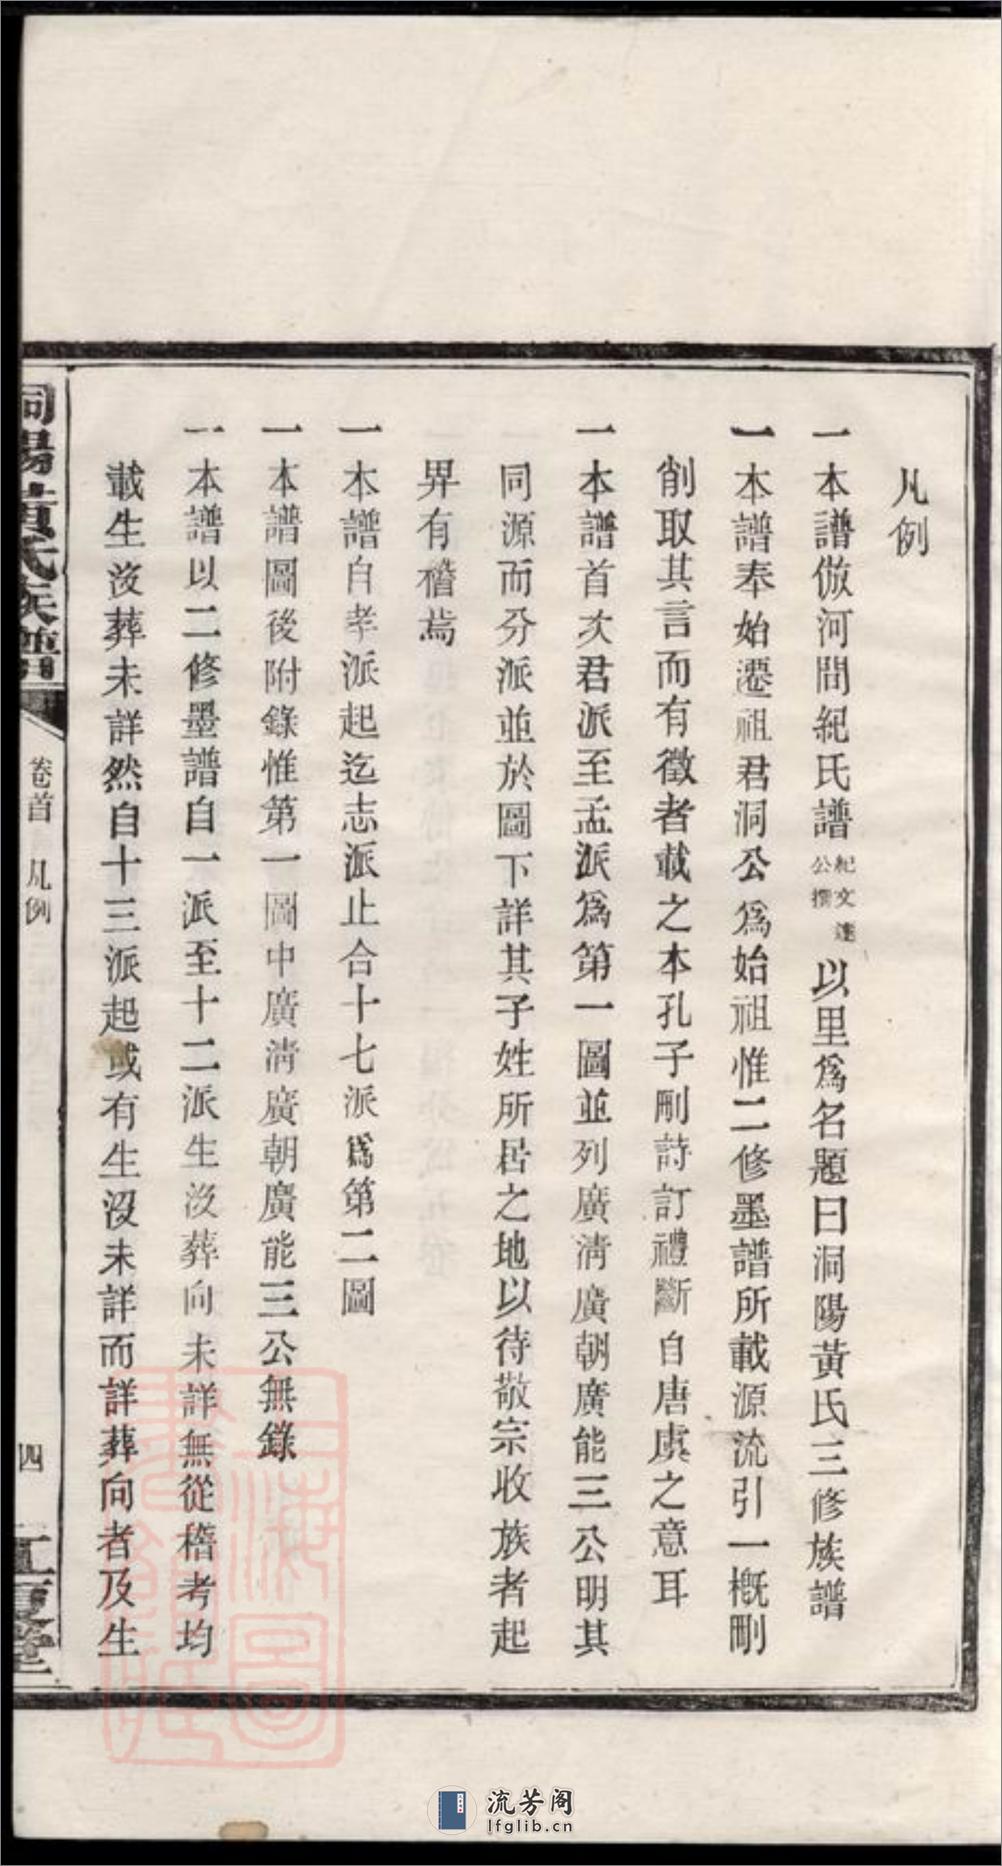 凡例
一本譜倣河間紀氏譜紀文達公撰以里爲名題曰洞陽黃氏三修族譜
一本譜奉始遷祖君洞公爲始祖惟二修墨譜所載源流引一槪刪
削取其言而有徵者載之本孔子刪詩訂禮斷自唐虞之意耳
一本譜首次君派至孟派爲第一圖並列廣淸廣朝廣能三公明其
同源而分派並於圖下詳其子姓所居之地以待敬宗收族者起
畀有稽焉
一本譜自孝派起迄志派止合十七派爲第二圖
一本譜圖後附錄惟第一圖中廣淸廣朝廣能三公無錄
一本譜以二修墨譜自一派至十二派生沒葬向未詳無從稽考均
載生沒葬未詳然自十三派起或有生沒未詳而詳葬向者及生
洞陽黃氏族譜
卷首
凡例
四
江夏堂
上海圖書館藏
流芳阁
lfglib.cn